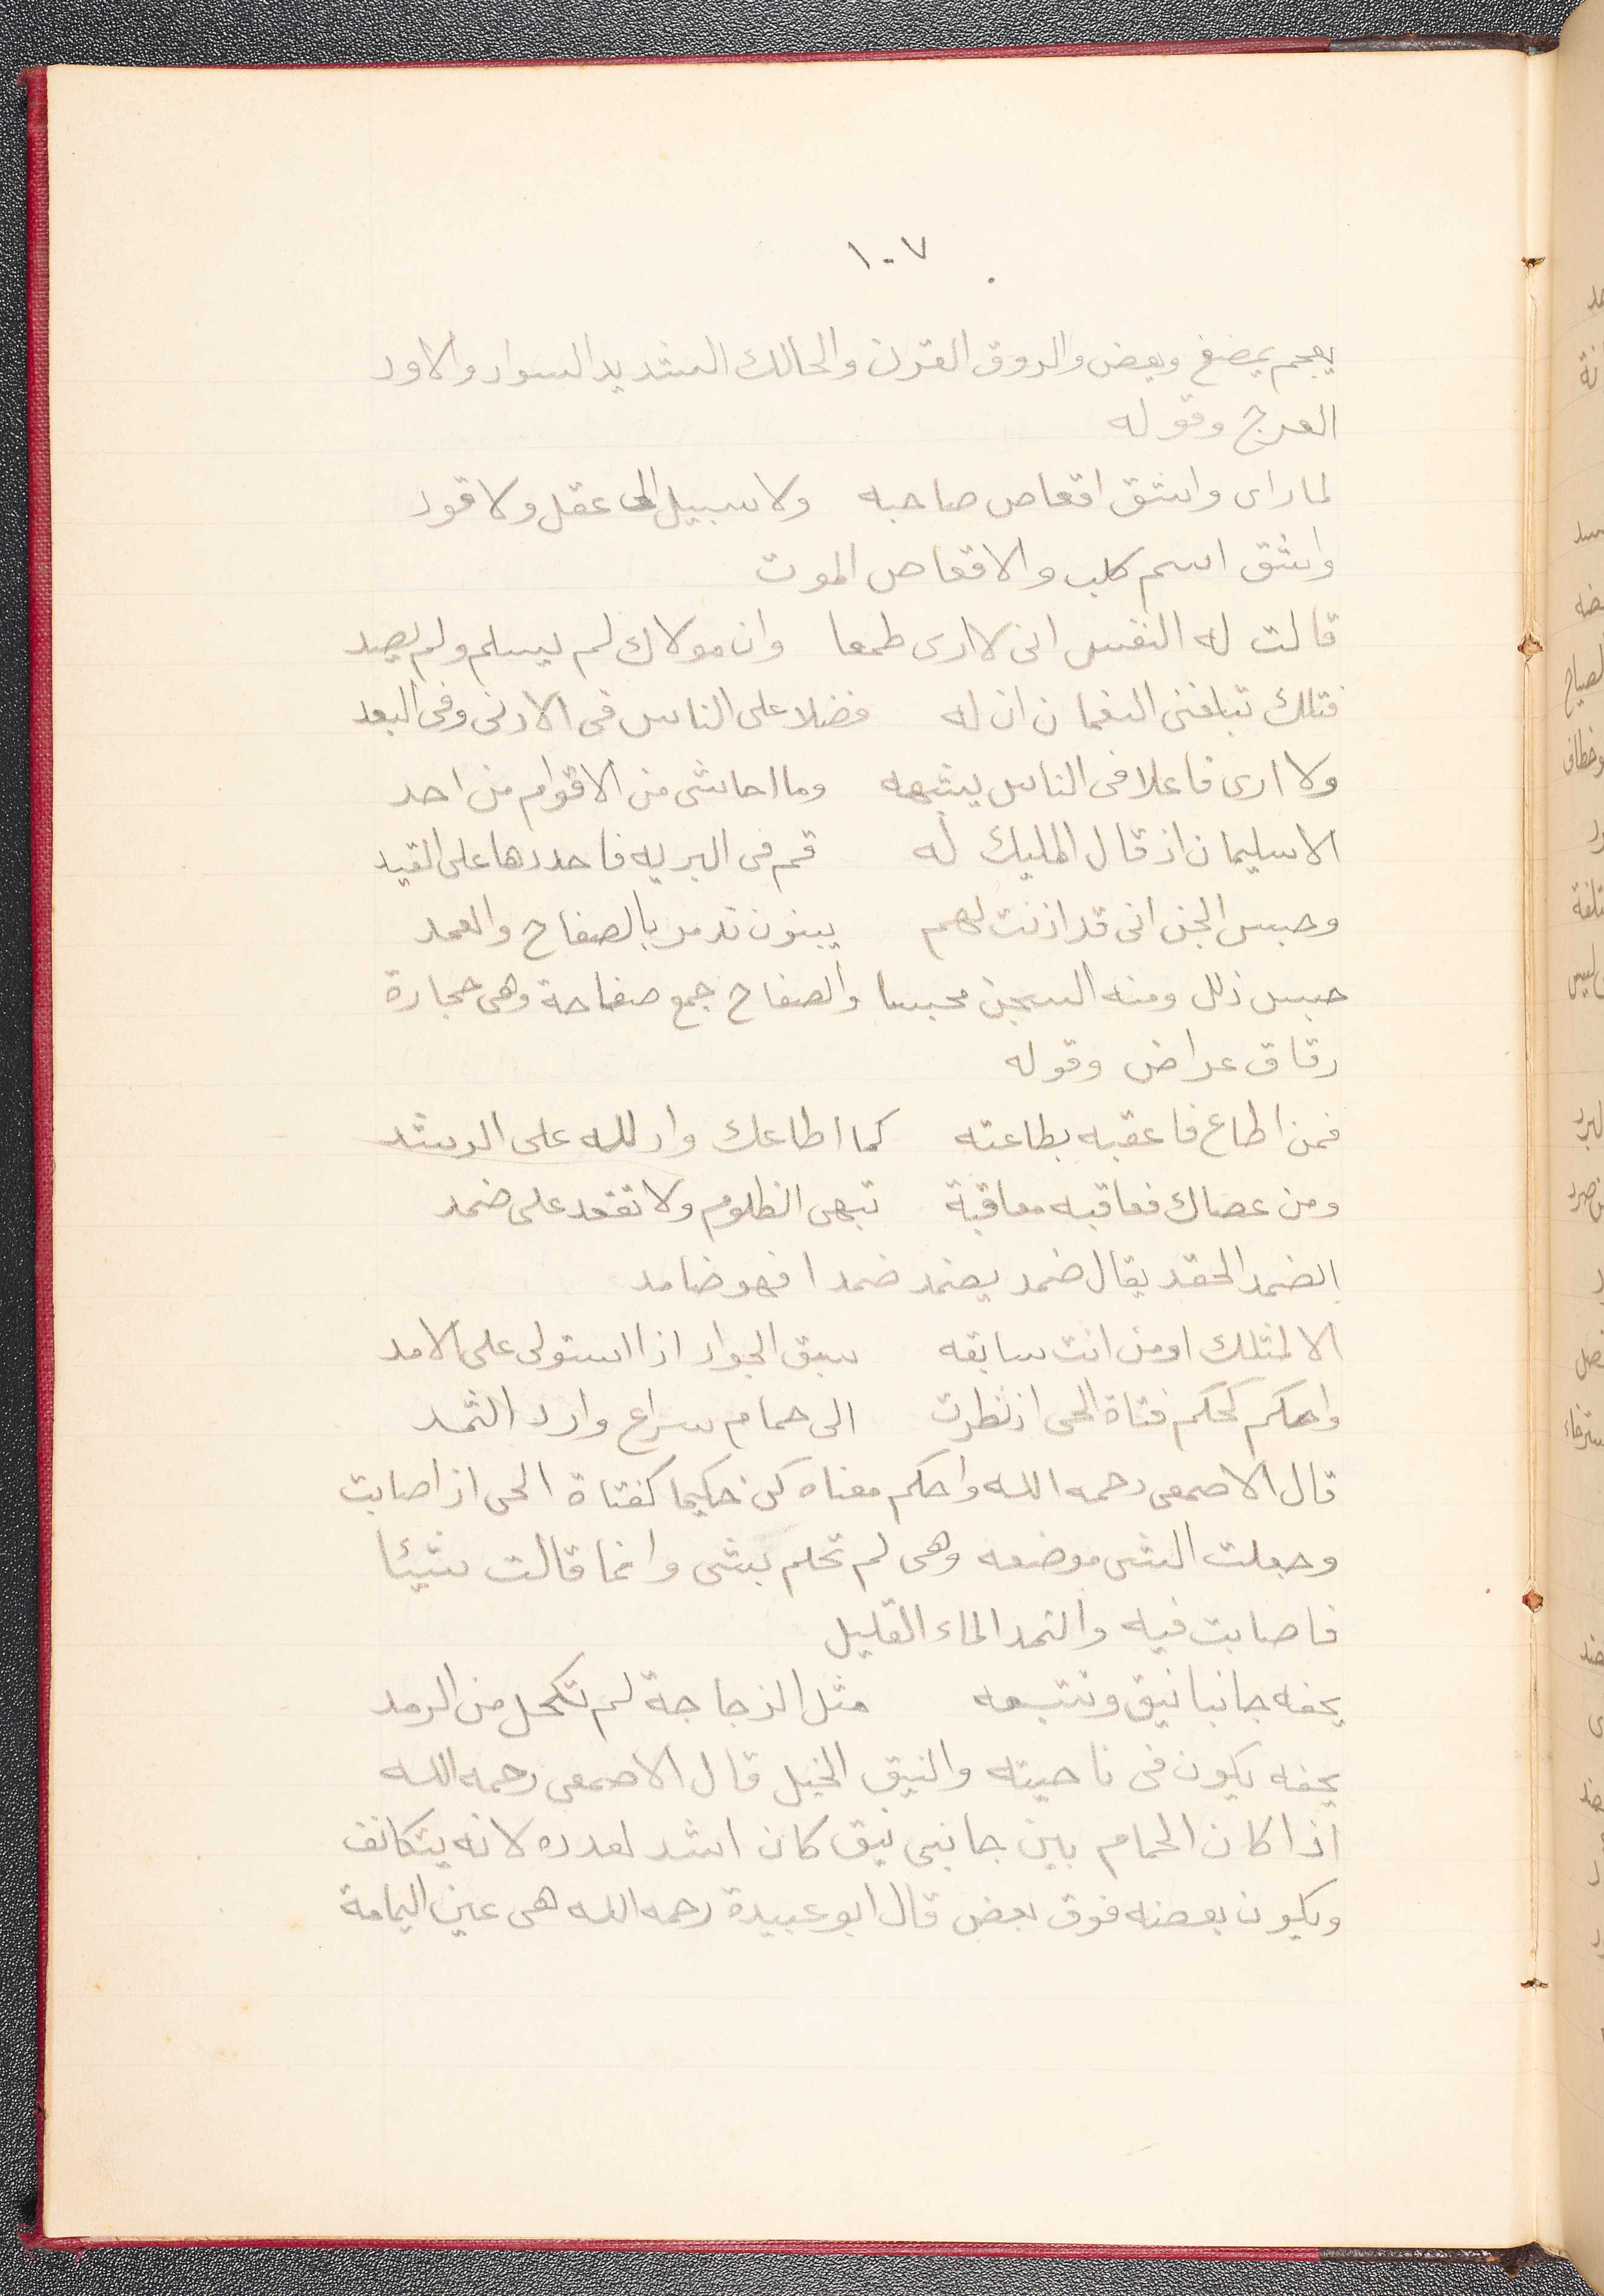 ١٠٧
يعجم يمضغ ويعض والروق القرن والحالك الشديد السواد والاود
العرج وقوله
لما راى واشق اقعاص صاحبه ولا سبيل الى عقل ولا قود
واشق اسم كلب والاقعاص الموت
قالت له النفس انى لا ارى طمعا وان مولاك لم يسلم ولم يصد
فتلك تبلغنى النعمان ان له فضلا على الناس فى الادنى وفى البعد
ولا ارى فاعلا فى الناس يشبهه وما احاشى من الاقوام من احد
الا سليمان اذ قال المليك له قم فى البريه فاحددها على الفيد
وحبس الجن انى قد اذنت لهم يبنون تدمر بالصفاح والعمد
حبس ذلل ومنه السجن محبسا والصفاح جمع صفاحة وهى حجارة
رقاق عراض وقوله
فمن اطاع فاعقبه بطاعته كما اطاعك وادلله على الرشد
ومن عصاك فعاقبه معاقبة تنهى الظلوم ولا تقعد على ضمد
الضمد الحقد يقال ضمد يضمد ضمدا فهو ضامد
الا لمثلك او من انت سابقه سبق الجواد اذا استولى على الامد
واحكم كحكم فتاة الحى اذ نظرت الى حمام سراع وارد الثمد
قال الاصمعى رحمه الله واحكم معناه كن حكيما كفتاة الحى اذ اصابت
وجعلت الشى موضعه وهى لم تحكم بشى وانما قالت شيئا
فاصابت فيه والثمد الماء القليل
يحفه جانبا نيق وتتبعه مثل الزجاجة لم تكحل من الرمد
يحفه يكون فى ناحيته والنيق الجبل قال الاصمعى رحمه الله
اذا كان الحمام بين جانبى نيق كان اشد لعدده لانه يتكاثف
ويكون بعضه فوق بعض قال ابو عبيدة رحمه الله هى عين اليمامة